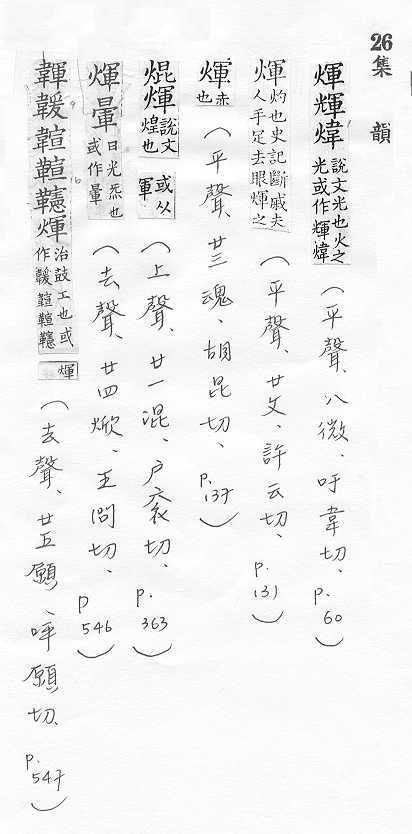 26 集韻
煇輝煒 說文光也火之光或作輝煒（平聲、八微、吁韋切、p.60）
煇 灼也史記斷戚夫人手足去眼煇之（平聲、廿文、許云切、p.131）
煇 赤也（平聲、廿三魂、胡昆切、p.137）
焜煇 說文煌也或从軍（上聲、廿一混、戶袞切、p.363）
煇暈 日光炁也或作暈（去聲、廿四焮、王問切、p546）
韗韗韗煇 治鼓工也或作 煇（去聲、廿五願、呼願切、p.547）